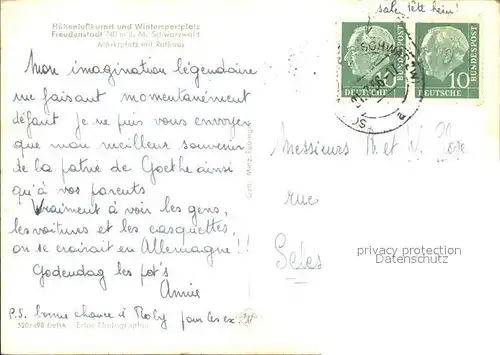 sale tête hein!
Höhenluftkurort und Wintersportplatz
Freudenstadt 740 m ü. M. Schwarzwald
Marktplatz mit Rathaus
DEUTSCHE BUNDESPOST 10
DEUTSCHE BUNDESPOST 10
Mon imagination légendaire
me faisant momentanément
défaut je ne puis vous envoyer
que mon meilleur souvenir
de la patrie de Goethe ainsi
qu'à vos parents.
Vraiment à voir les gens,
les voitures et les casquettes,
on se croirait en Allemagne!!
Godendag les pot's
Annie
P.S. bonne chance à Roby pour les ex.
Messieurs R. et W.
rue
Seles
privacy protection
DATENSCHUTZ
Gebr. Metz, Tübingen